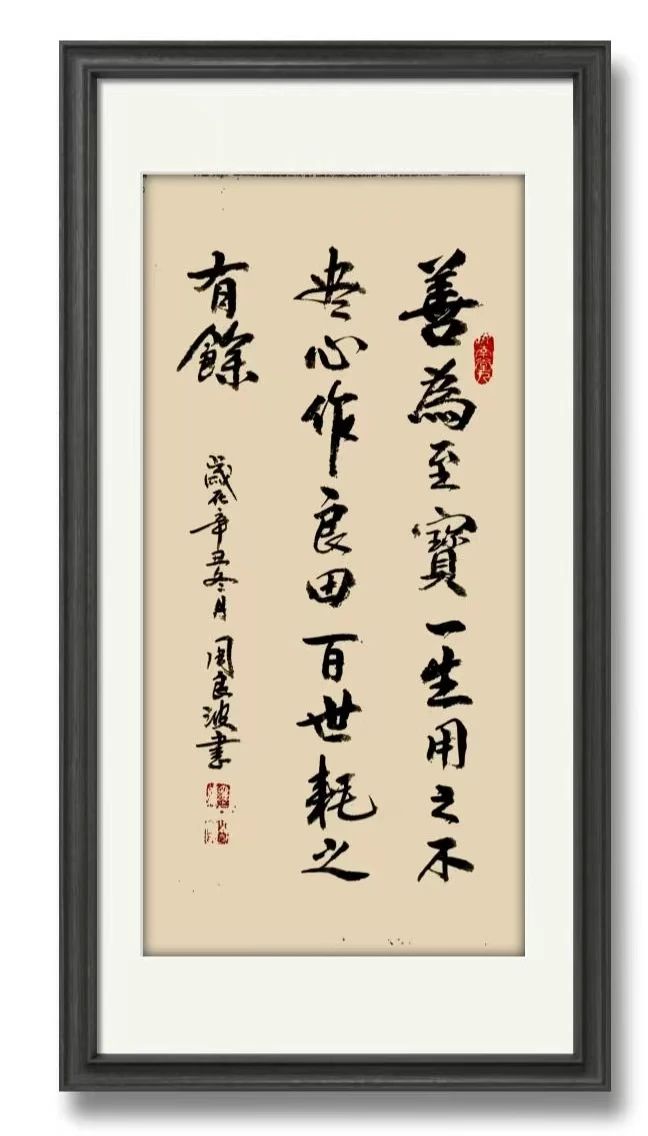 善為至寶一生用之不
尽心作良田百世耗之
有餘
歲在辛丑冬月周良波書